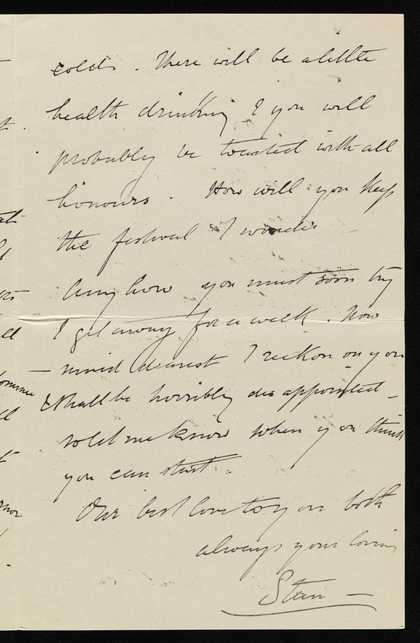 colds. There will be a little
health drinking & you will
probably be toasted with all
honours. How will you keep
the festival I wonder
Anyhow you must soon try
& get away for a week. Now
mind dearest I reckon on you
& shall be horribly disappointed –
so let me know when you think
you can start.
Our best love to you both
always your loving
Stan –